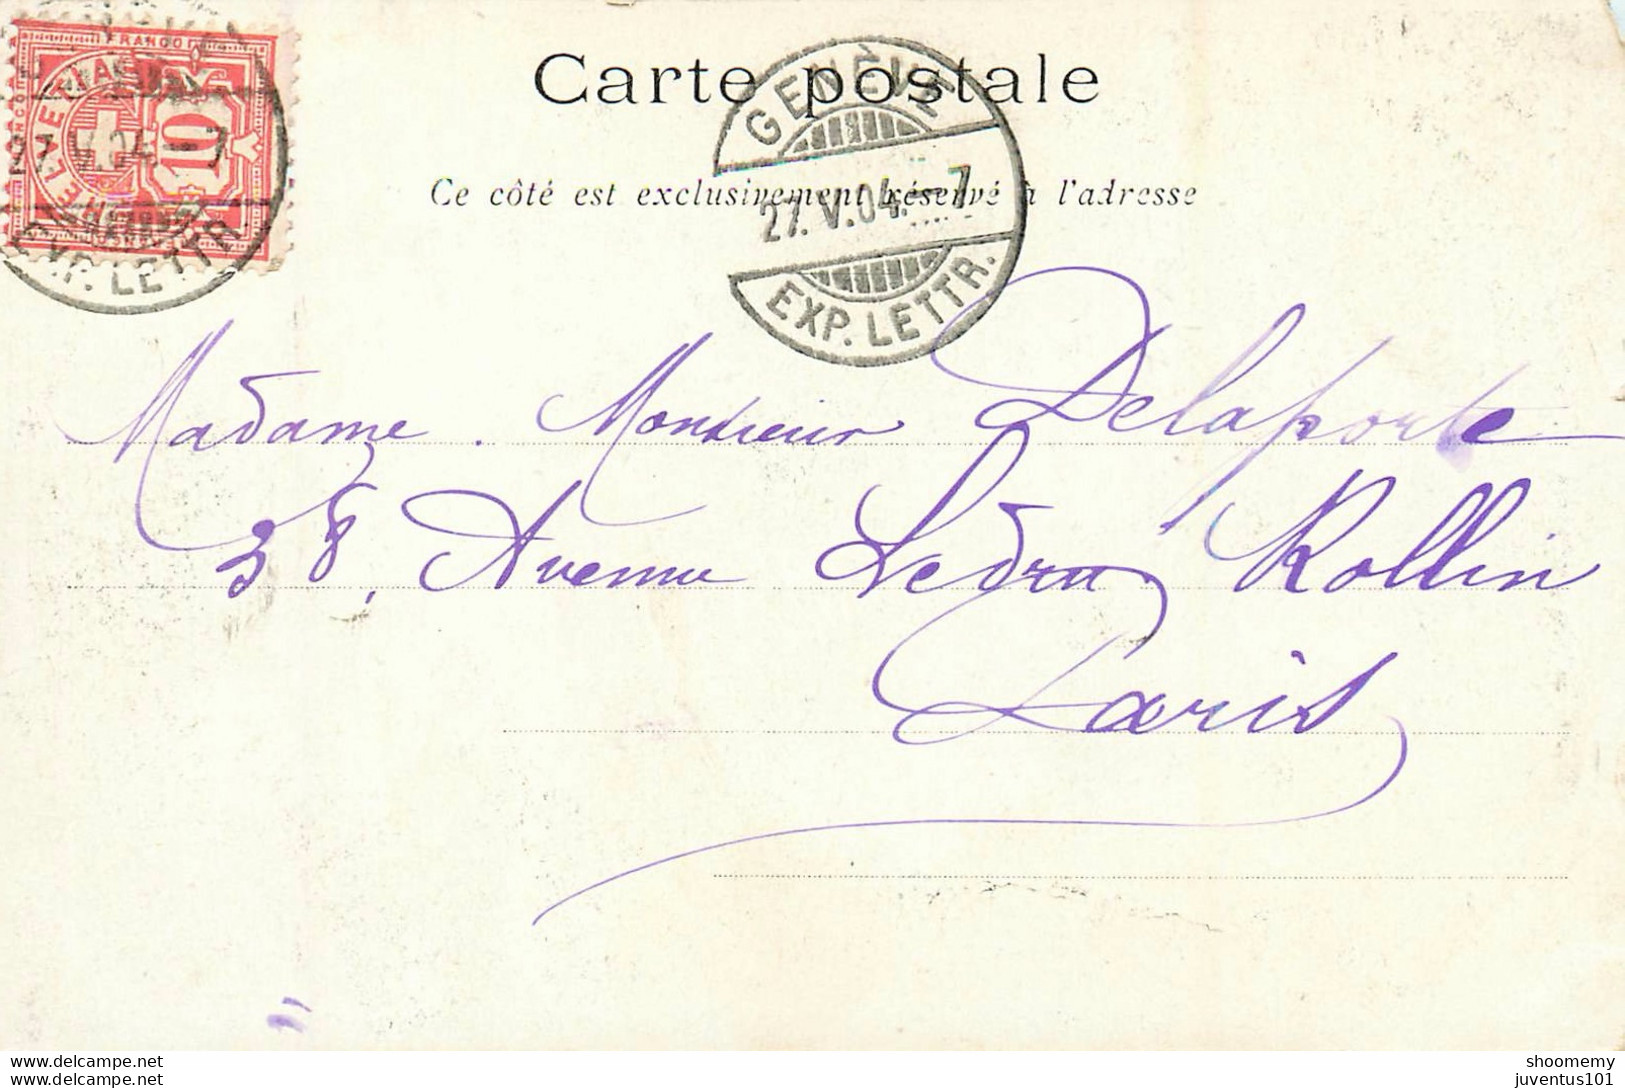 FRANCO
HELVETIA
10
27.V.04.–7
EXP. LETTR.
Carte postale
GENÈVE
27.V.04.–7
EXP. LETTR.
Ce côté est exclusivement réservé à l'adresse
Madame. Monsieur Delaporte
38, Avenue Ledru Rollin
Paris
www.delcampe.net
www.delcampe.net
shoomemy
juventus101